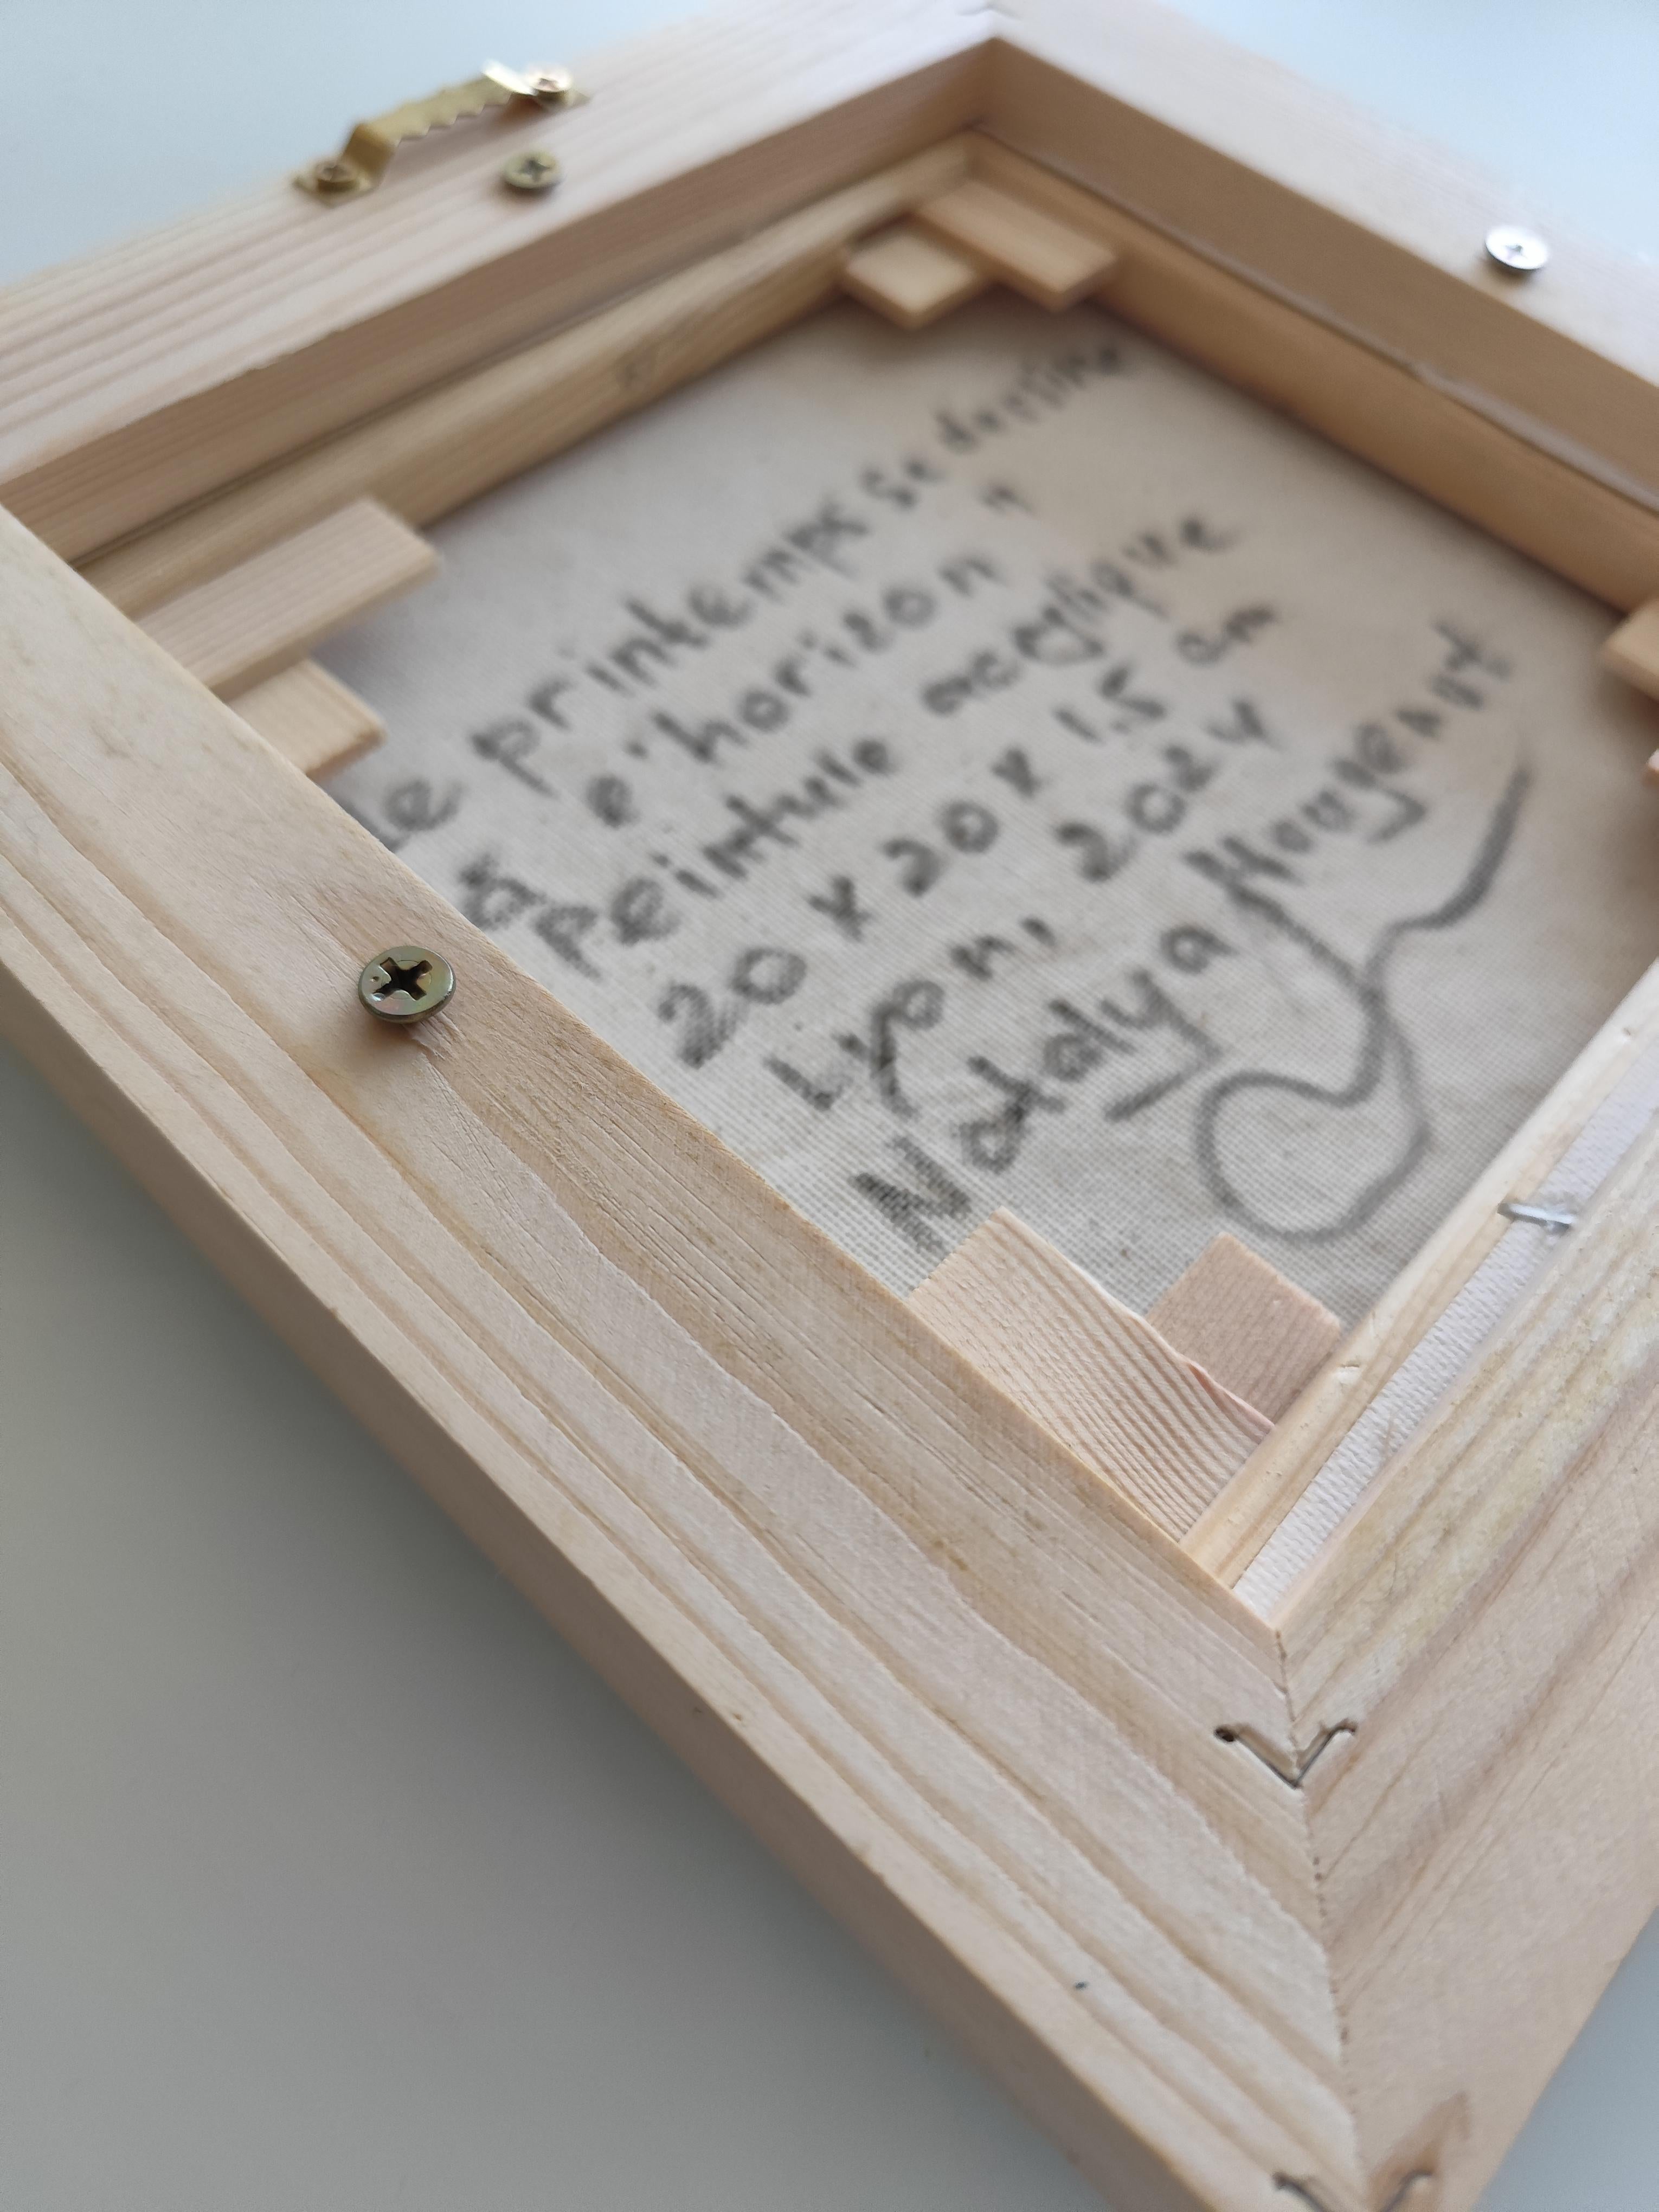 Le printemps se dessine
à l'horizon"
peinture acrylique
20 x 20 x 1.5 cm
Lyon, 2024
Natalya Mougenot